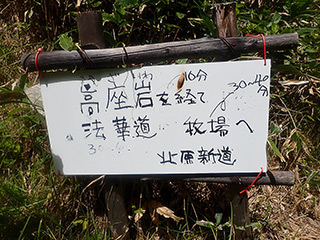 10分
高座岩を経て
30〜40分
法華道 牧場へ
北原新道